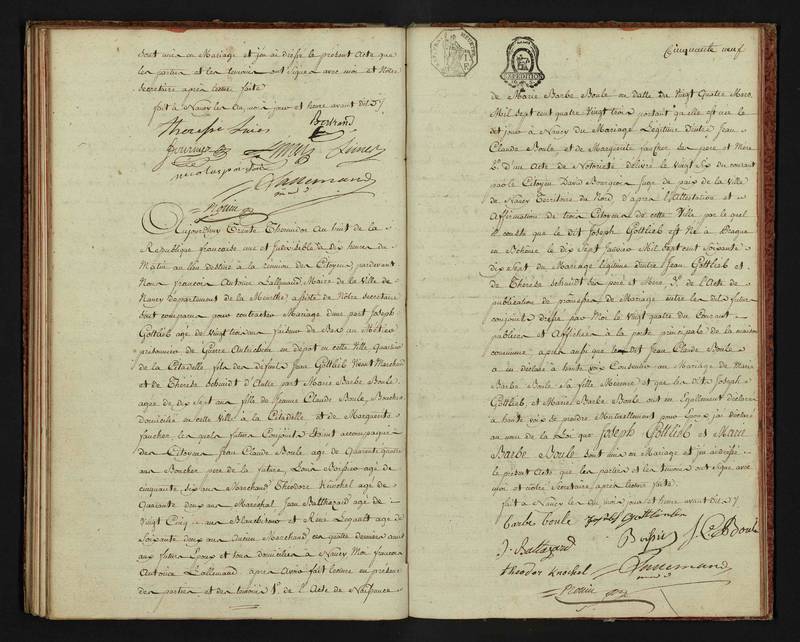 sont unis en Mariage et j'ai dressé le présent Acte que
les parties et les temoins ont signé avec moi et Nôtre
Secretaire après lecture faite
fait à Nancy les an, mois jour et heure avant dits
Bertrand
fournier
nicolas
Lallemand
Aujourdhuy Trente Thermidor An huit de la
Republique française une et Indivisible à Dix heures du
Matin au lieu destiné à la réunion des Citoyens pardevant
Nous françois Antoine Lallemand, Maire de la Ville de
Nancy département de la Meurthe assisté de Nôtre secretaire
sont comparus pour contracter Mariage d'une part Joseph
Gottlieb agé de vingt trois ans faiseur de Bas au Métier
prisonnier de Guerre Autrichien en dépôt en cette Ville Quartier
de la Citadelle, fils des défunts Jean Gottlieb Marchand
et de Thérèse Schmidt d'Autre part Marie Barbe Boule
agée de dix sept ans fille de Jeanne Claude Boule, Boucher
domiciliée en cette Ville à la Citadelle et de Marguerite
faucher les quels futurs Conjoints étoient accompagnés
des Citoyens Jean Claude Boule agé de Quarante quatre
ans Boucher pere de la future, Louis agé de
cinquante six ans Marechand Theodore Knöchel agé de
Quarante deux ans Marechal Jean Balthazard agé de
Vingt Cinq ans et Réné agé de
soixante deux ans Ancien Marchand ces quatre derniers amis
aux futurs Epoux et tous domiciliés à Nancy Moi françois
Antoine Lallemand après avoir fait lecture en présence
des parties et des temoins 1.° de l'Acte de Naissance
Cinquante neuf
de Marie Barbe Boule en datte du Vingt Quatre Mars
Mil sept cent quatre Vingt trois portant qu'elle est née le
dit jour à Nancy du Mariage Légitime d'entre Jean
Claude Boule et de Marguerite faucher ses pere et Mere
2.° d'un Acte de Notoriété délivré le Vingt Six du courant
par le Citoyen David Bourgeois Juge de paix de la Ville
de Nancy Territoire du Nord d'après l'Attestation et
Affirmation de trois Citoyens de cette Ville par le quel
il conste que le dit Joseph Gottlieb est Né à Prague
en Bohême le dix Sept Janvier Mil Sept cent Soixante
dix Sept du Mariage légitime d'entre Jean Gottlieb et
de Thérèse Schmidt ses pere et Mere. 3.° de l'Acte de
publication de promesses de Mariage entre les dits futurs
conjoints dressé par Moi le Vingt quatre du Courant
publiées et Affichées à la porte principale de la maison
commune, après aussi que le dit Jean Claude Boule
a eu déclaré à haute voix Consentir au Mariage de Marie
Barbe Boule sa fille Mineure et que les dits Joseph
Gottlieb, et Marie Barbe Boule ont eu Egallement déclaré
à haute voix se prendre Mutuellement pour Epoux j'ai déclaré
au nom de la Loi que Joseph Gottlieb et Marie
Barbe Boule sont unis en Mariage et j'ai dressé
le présent Acte que les parties et les temoins ont signé avec
moi et nôtre Secretaire après lecture faite.
fait à Nancy les an mois jour et heure avant dits
barbe boule Joseph Gottlieb
J. Baltazard J. C. Boule
theodor Knochel Lallemand